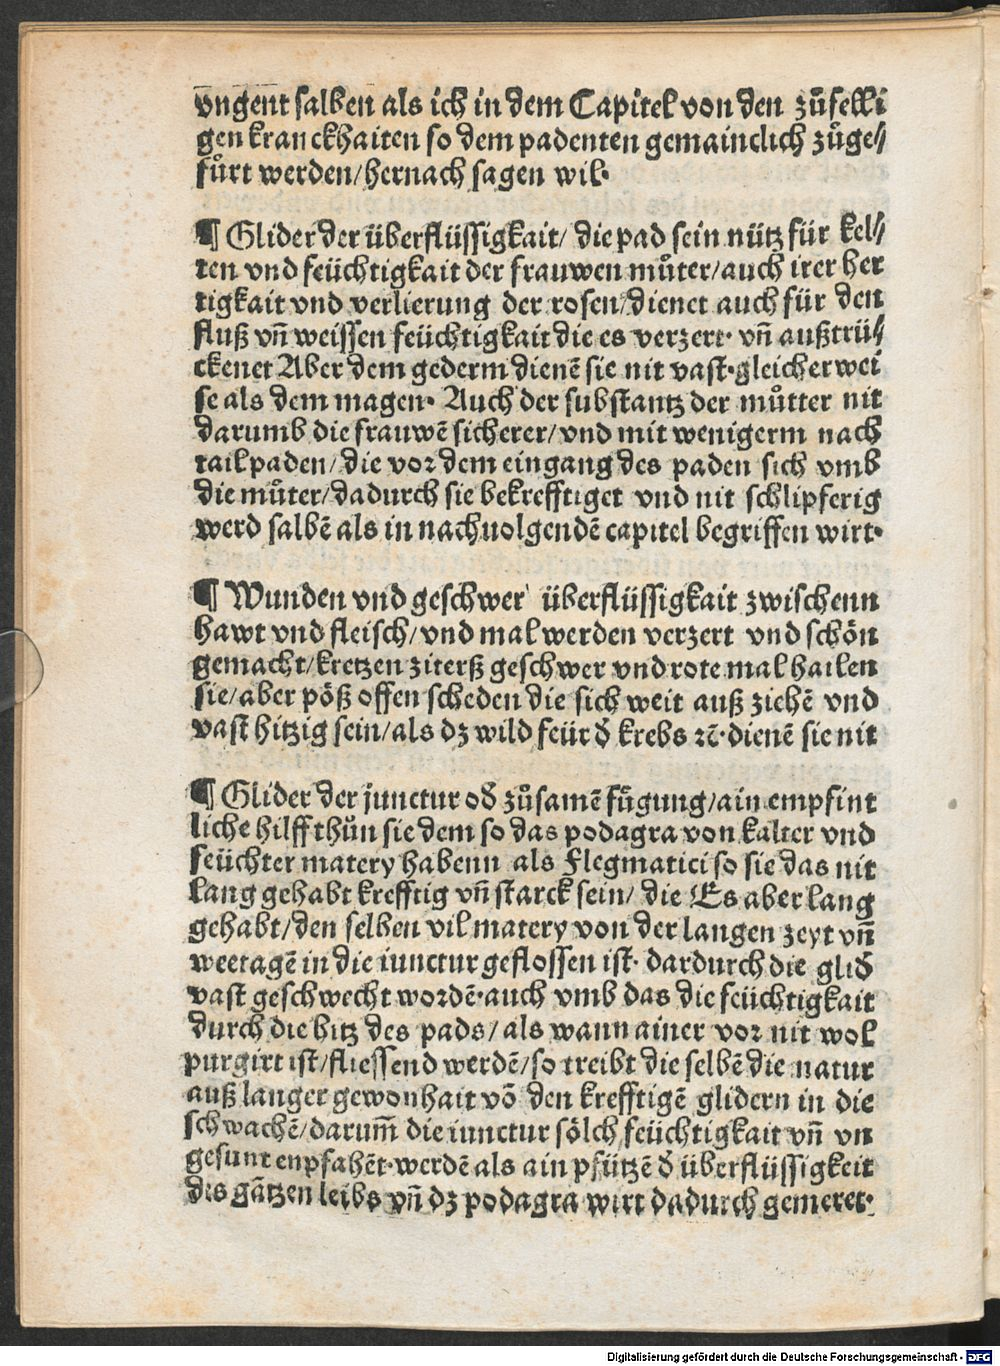 vngent salben als ich in dem Capitel von den zůfelli
gen kranckhaiten so dem padenten gemainclich zůge⸗
fůrt werden/hernach sagen wil·
¶ Glider der überflüssigkait/ die pad sein nütz für kel⸗
ten vnd feüchtigkait der frauwen můter/auch irer her
tigkait vnd verlierung der rosen/dienet auch für den
fluß vn̄ weissen feüchtigkait die es verzert· vn̄ außtrü⸗
ckenet Aber dem gederm dienē sie nit vast·gleicher wei
se als dem magen· Auch der substantz der můtter nit
darumb die frauwē sicherer/vnd mit wenigerm nach
tail paden/die vor dem eingang des paden sich vmb
die můter/dadurch sie bekrefftiget vnd nit schlipferig
werd salbē als in nachuolgendē capitel begriffen wirt·
¶ Wunden vnd geschwer überflüssigkait zwischenn
hawt vnd fleisch/vnd mal werden verzert vnd schön
gemacht/kretzen ziterß geschwer vnd rote mal hailen
sie/aber pöß offen scheden die sich weit auß ziehē vnd
vast hitzig sein/als dz wild feür đ krebs ꝛč·dienē sie nit
¶ Glider der junctur ođ zůsamē fůgung/ain empfint
liche hilff thůn sie dem so das podagra von kalter vnd
feüchter matery habenn als Flegmatici so sie das nit
lang gehabt krefftig vn̄ starck sein/ die Es aber lang
gehabt/den selben vil matery von der langen zeyt vn̄
weetagē in die iunctur geflossen ist· dardurch die gliđ
vast geschwecht wordē·auch vmb das die feüchtigkait
durch die hitz des pads/als wann ainer vor nit wol
purgirt ist/fliessend werdē/so treibt die selbē die natur
auß langer gewonhait vō den krefftigē glidern in die
schwachē/darum̄ die iunctur sölch feüchtigkait vn̄ vn
gesunt enpfahēt·werdē als ain pfützē đ überflüssigkeit
des gātzen leibs vn̄ dz podagra wirt dadurch gemeret·
Digitalisierung gefördert durch die Deutsche Forschungsgemeinschaft - DFG